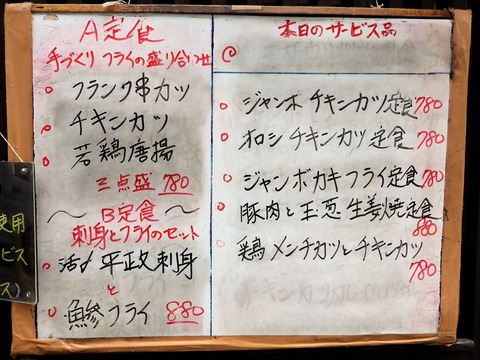 A定食
手づくりフライの盛り合いせ
フランク串カツ
チキンカツ
若鶏唐揚
三点盛 780
〜B定食〜
刺身とフライのセット
活〆平政刺身
と
鯵フライ 880
本日のサービス品
ジャンボチキンカツ定食 780
オロシチキンカツ定食 780
ジャンボカキフライ定食 780
豚肉と玉葱生姜焼定食
880
鶏メンチカツとチキンカツ
780
使用
ビス
ス)